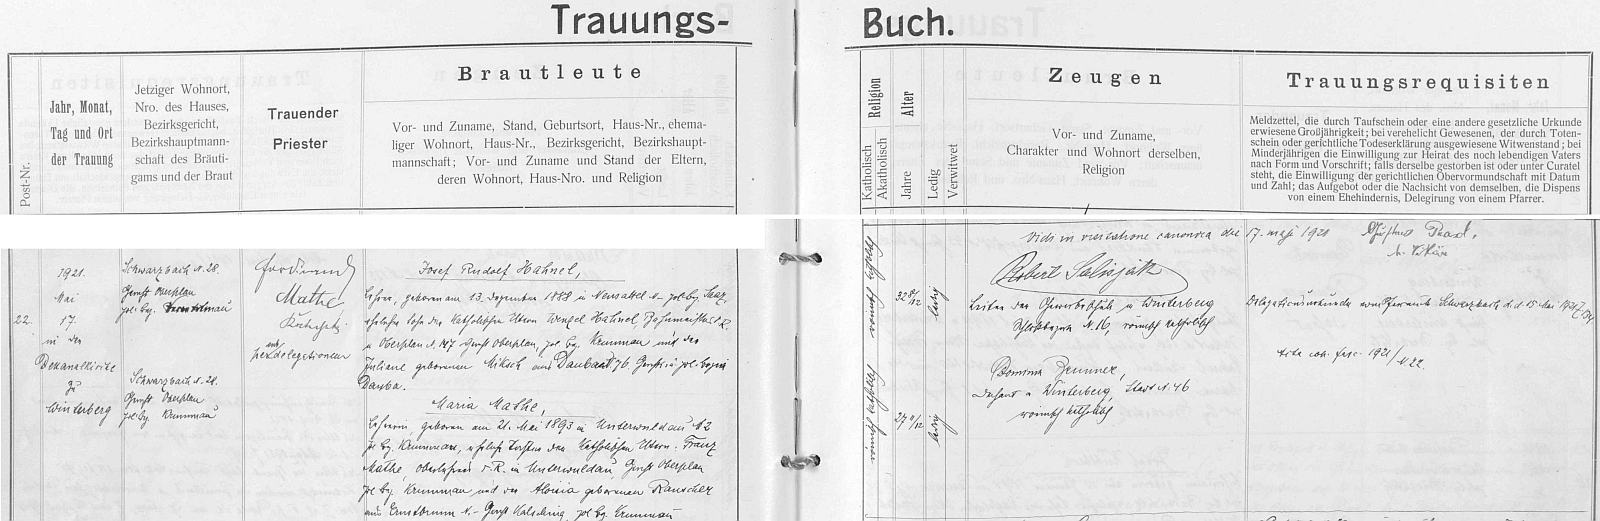 Trauungs-
Buch.
Post-Nr.
Jahr, Monat,
Tag und Ort
der Trauung
Jetziger Wohnort,
Nro. des Hauses,
Bezirksgericht,
Bezirkshauptmann-
schaft des Bräuti-
gams und der Braut
Trauender
Priester
Brautleute
Vor- und Zuname, Stand, Geburtsort, Haus-Nr., ehema-
liger Wohnort, Haus-Nr., Bezirksgericht, Bezirkshaupt-
mannschaft; Vor- und Zuname und Stand der Eltern,
deren Wohnort, Haus-Nro. und Religion
Religion
Katholisch
Akatholisch
Alter
Jahre
Ledig
Verwitwet
Zeugen
Vor- und Zuname,
Charakter und Wohnort derselben,
Religion
Trauungsrequisiten
Meldzettel, die durch Taufschein oder eine andere gesetzliche Urkunde
erwiesene Großjährigkeit; bei verehelicht Gewesenen, der durch Toten-
schein oder gerichtliche Todeserklärung ausgewiesene Witwenstand; bei
Minderjährigen die Einwilligung zur Heirat des noch lebenden Vaters
nach Form und Vorschrift; falls derselbe gestorben ist oder unter Curatel
steht, die Einwilligung der gerichtlichen Obervormundschaft mit Datum
und Zahl; das Aufgebot oder die Nachsicht von demselben, die Dispens
von einem Ehehindernis, Delegirung von einem Pfarrer.
22.
1921.
Mai
17.
in der
Dekanalkirche
zu
Winterberg
Schwarzbach N. 28.
Gerbz Oberplan
pol. bg.
Schwarzbach N. 28.
Gerbz Oberplan
pol. bg. Krummau
Ferdinand
Mathe
Josef Rudolf Hahnel,
Lehrer, geboren am 13. Dezember 1888 in
ehelicher Sohn der katholischen Eltern Wenzel Hahnel,
in Oberplan N. 147 Oberplan, pol. bg. Krummau und der
Juliane geborenen Miksch aus
Dauba.
Maria Mathe,
Lehrerin, geboren am 21. Mai 1893 in Unterwuldau N 2
pol. bg. Krummau, eheliche Tochter der katholischen Eltern: Franz
Mathe, Oberlehrer i. R. in Unterwuldau, Oberplan
pol. bg. Krummau und der Aloisia geborenen Rauscher
aus Ernstbrunn N. Kalsching, pol. bg. Krummau
römisch katholisch
römisch katholisch
32 5/12
ledig
27 11/12
ledig
Vidi in visitatione canonica die 17. maji 1921
Robert
Leiter der Gewerbeschule in Winterberg
N. 16, römisch katholisch
Brunner,
Dechant in Winterberg, Stadt N. 46
römisch katholisch
Delegationsurkunde vom Pfarramte Schwarzbach d. d. 15. Mai 1921
1921/N 22.